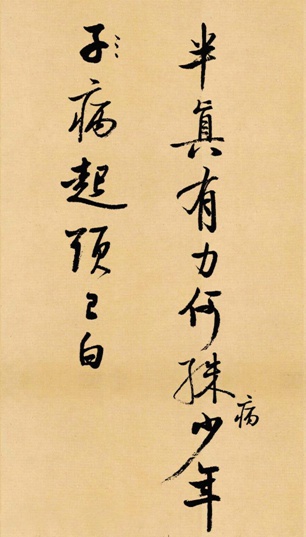 半真有力何殊病少年
子病起頭已白